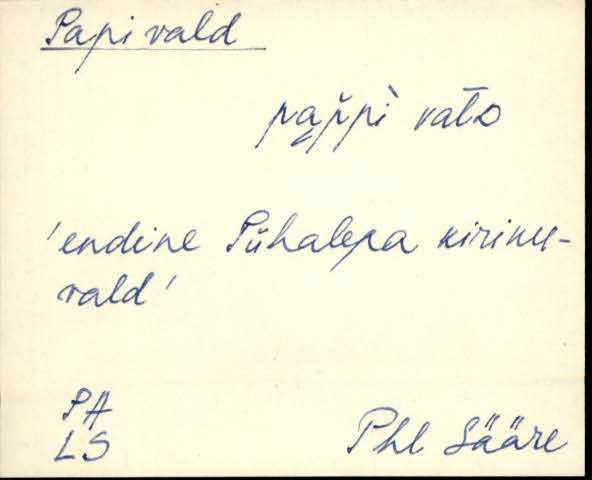 Papi vald
pap̆pì vāl̄D
'endine Pühalepa kiriku-
vald'
PA
LS
Phl Sääre